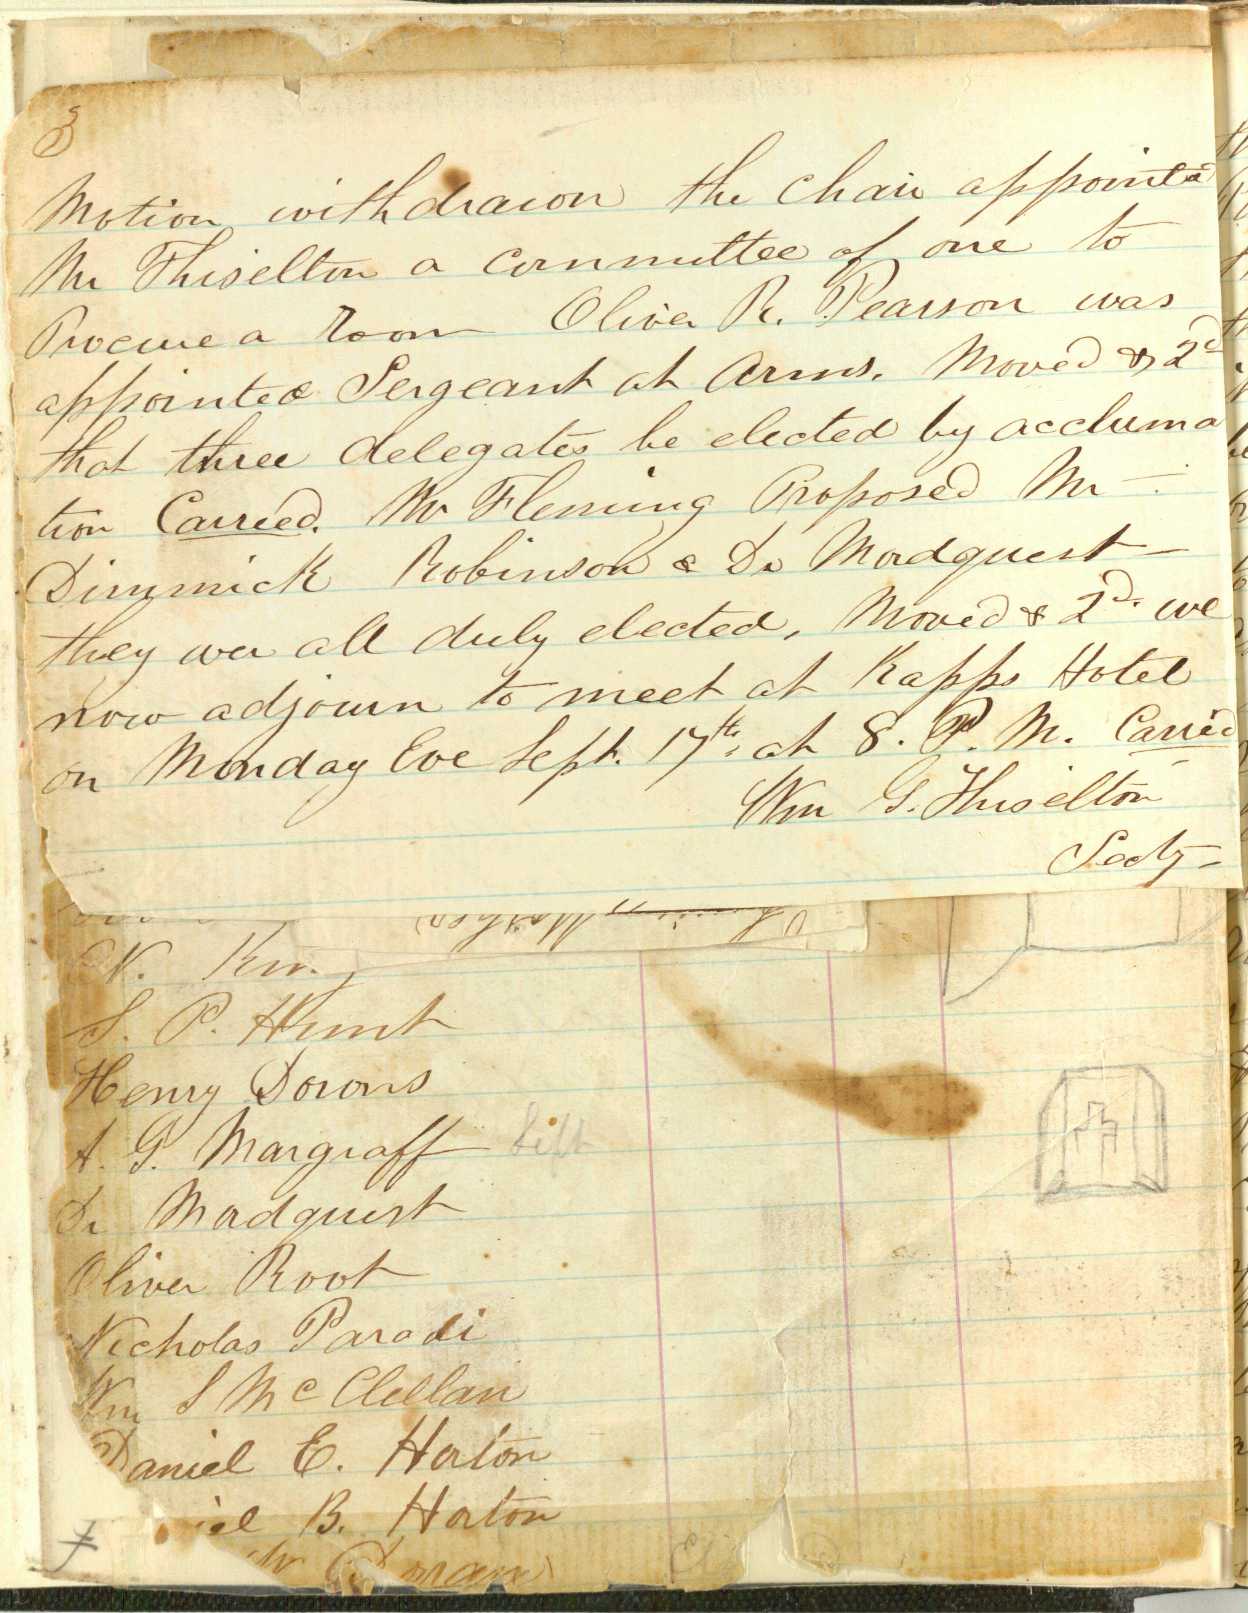 3
Motion withdrawn the Chair appointed
Mr Thiselton a committee of one to
Procure a Room Oliver R. Pearson was
appointed Sergeant at Arms. Moved & 2d
that three delegates be elected by acclama
tion Carried. Mr Fleming Proposed Mr
Dimmick Robinson & Dr Mordquest
they wer all duly elected, Moved & 2d. we
now adjourn to meet at Kapps Hotel
on Monday Eve Sept. 17th, at 8. P. M. Carried
Wm G. Thiselton
Secty
N. King
S. P. Hunt
Henry Downs
A. G. Margraff left
Dr Mordquist
Oliver Root
Nicholas Paradi
Wm S McClellan
Daniel E. Horton
iel B. Horton
Doran